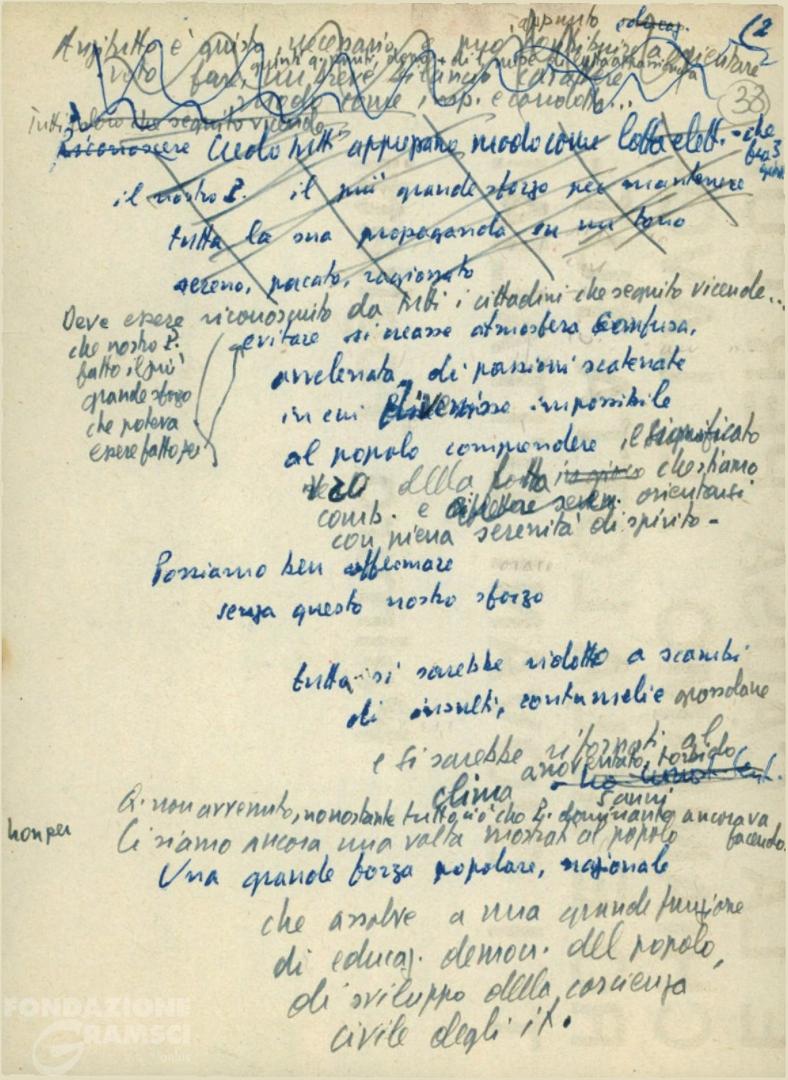 appunto
(2
Anzitutto è giusto, necessario e può contribuire a orientare
voto fare un breve bilancio carattere
modo come i sop. e condotta...
33
Tutti coloro che seguito vicende
riconoscere Credo tutti appurano modo come lotta elett. - che
il nostro P. il più grande sforzo per mantenere
tutta la sua propaganda su un tono
sereno, pacato, ragionato
Deve essere riconosciuto da tutti i cittadini che seguito vicende...
che nostro P.
fatto il più
grande sforzo
che poteva
essere fatto per
evitare si creasse atmosfera confusa,
avvelenata, di passioni scatenate
in cui divenisse impossibile
al popolo comprendere il significato
vero della lotta che stiamo
comb. e orientarsi
con piena serenità di spirito -
Possiamo ben affermare
senza questo nostro sforzo
tutto si sarebbe ridotto a scambi
di insulti, contumelie grossolane
e si sarebbe ritornati al
clima arroventato, torbido
5 anni
Q. non avvenuto, nonostante tutto ciò che P. dominante ancora va
facendo.
non per
Ci siamo ancora una volta mostrati al popolo
Una grande forza popolare, nazionale
che assolve a una grande funzione
di educaz. democr. del popolo,
di sviluppo della coscienza
civile degli it.
FONDAZIONE
GRAMSCI